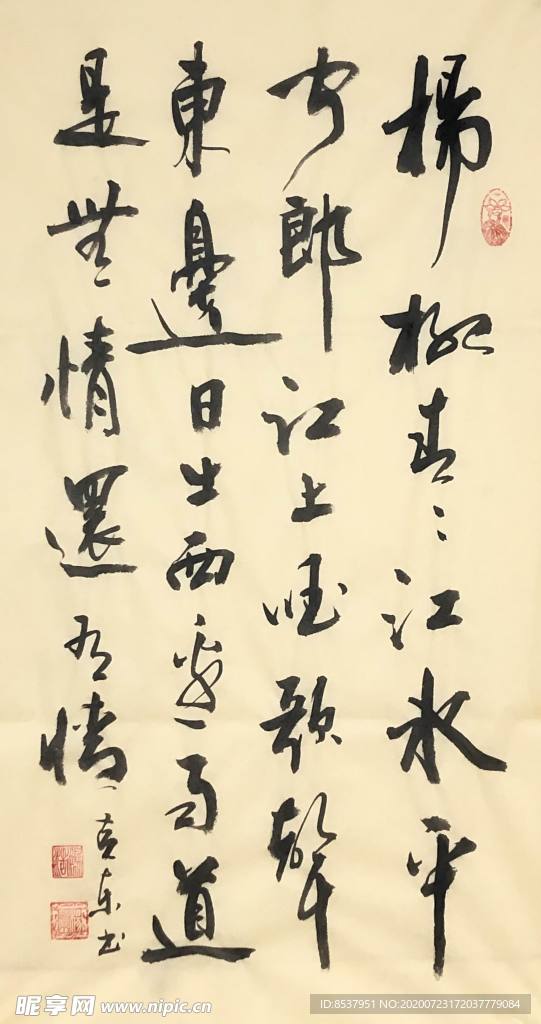 楊柳青々江水平
聞郎江上唱歌聲
東邊日出西邊雨道
是無情還有情
东书
昵享网 www.nipic.cn
ID:8537951 NO:20200723172037779084